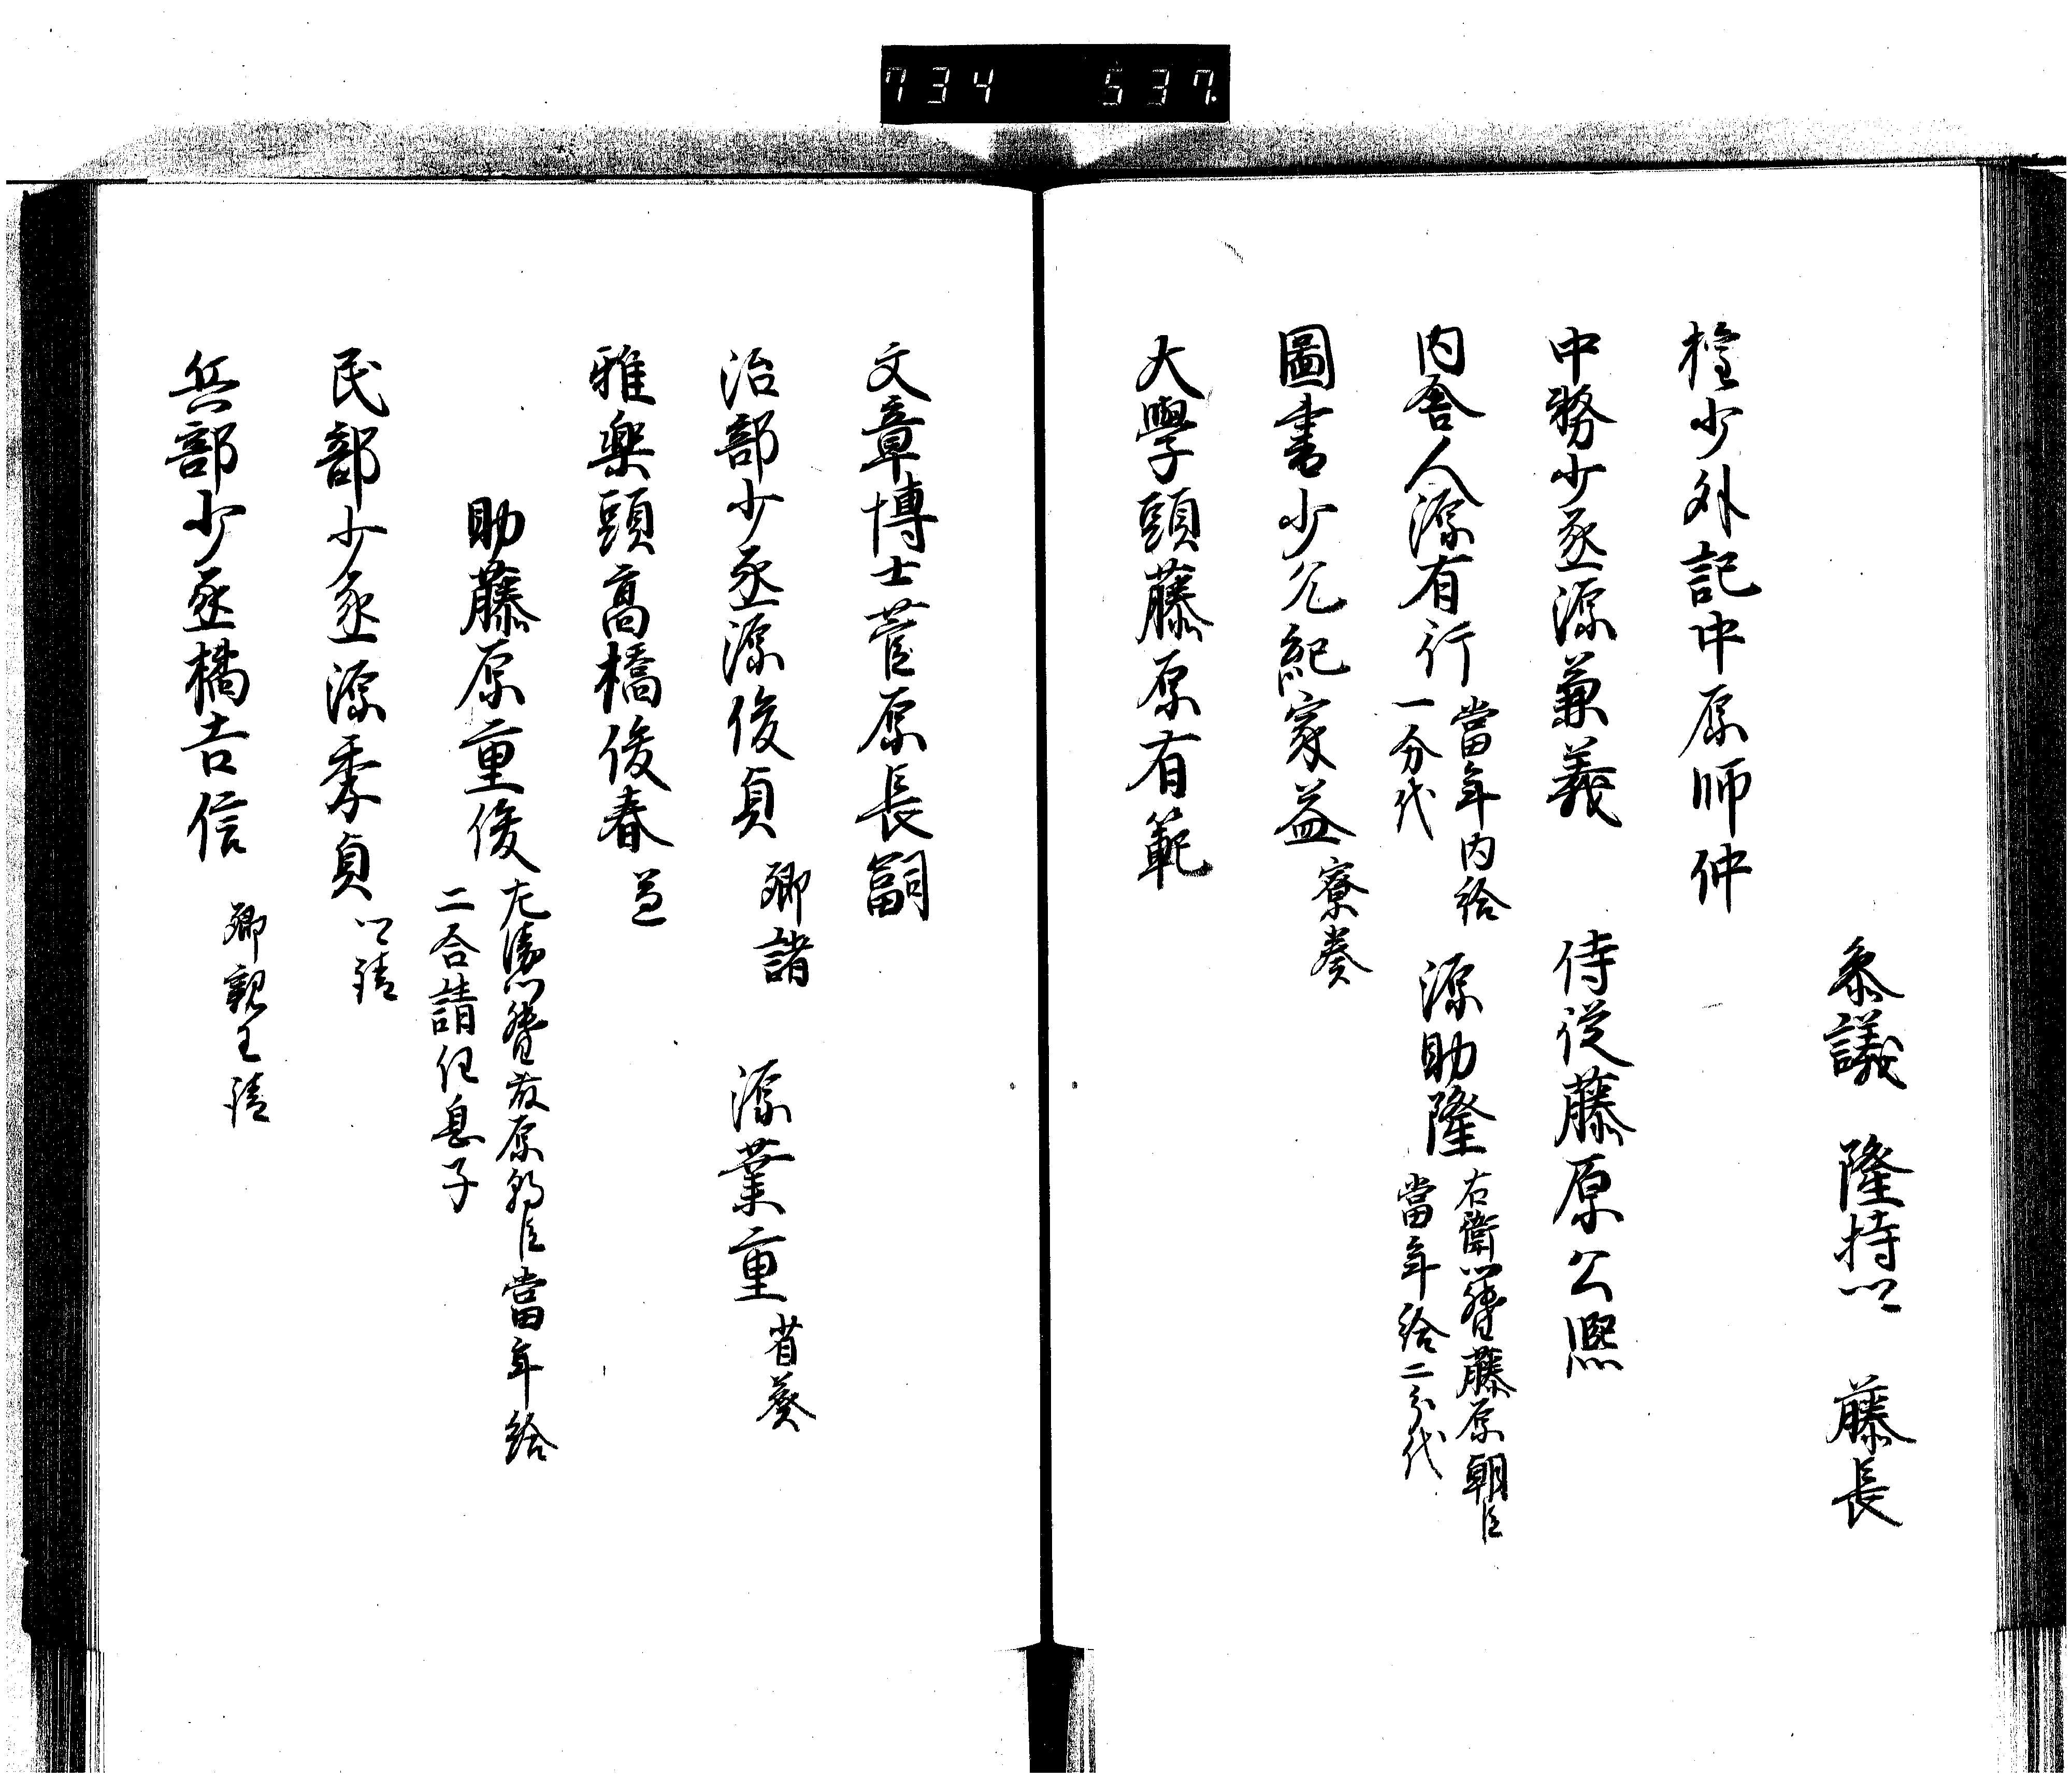 734 537
参議 隆持 藤長
権少外記中原師仲
中務少丞源兼義 侍従藤原公熙
内舎人源有行 當年内給 一分代 源助隆 右衛門督藤原朝臣 當年給二分代
圖書少允紀家益 寮奏
大學頭藤原有範
文章博士菅原長嗣
治部少丞源俊貞 卿請 源業重 省奏
雅楽頭高橋俊春
助藤原重俊 左衛門督藤原朝臣當年給 二合請任息子
民部少丞源季貞 請
兵部少丞橘吉信 卿親王請